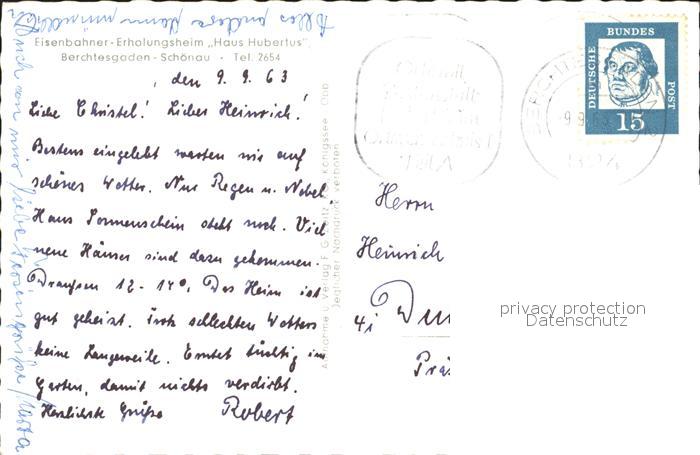 Alles andere dann mündlich
Eisenbahner-Erholungsheim „Haus Hubertus",
Berchtesgaden-Schönau · Tel. 2654
, den 9. 9. 63
Liebe Christel! Lieber Heinrich!
Bestens eingelebt warten wir auf
schönes Wetter. Nur Regen u. Nebel.
Haus Sonnenschein steht noch. Viel
neue Häuser sind dazu gekommen.
Draußen 12-14°. Das Heim ist
gut geheizt. Trotz schlechten Wetters
keine Langeweile. Erntet tüchtig im
Garten, damit nichts verdirbt.
Herzlichste Grüße Robert
Auch von mir liebe
Aufnahme u. Verlag F. G. Königssee Obb.
Jeglicher Nachdruck verboten
DEUTSCHE BUNDES POST
15
-9.9.63
Herrn
Heinrich
privacy protection
Datenschutz